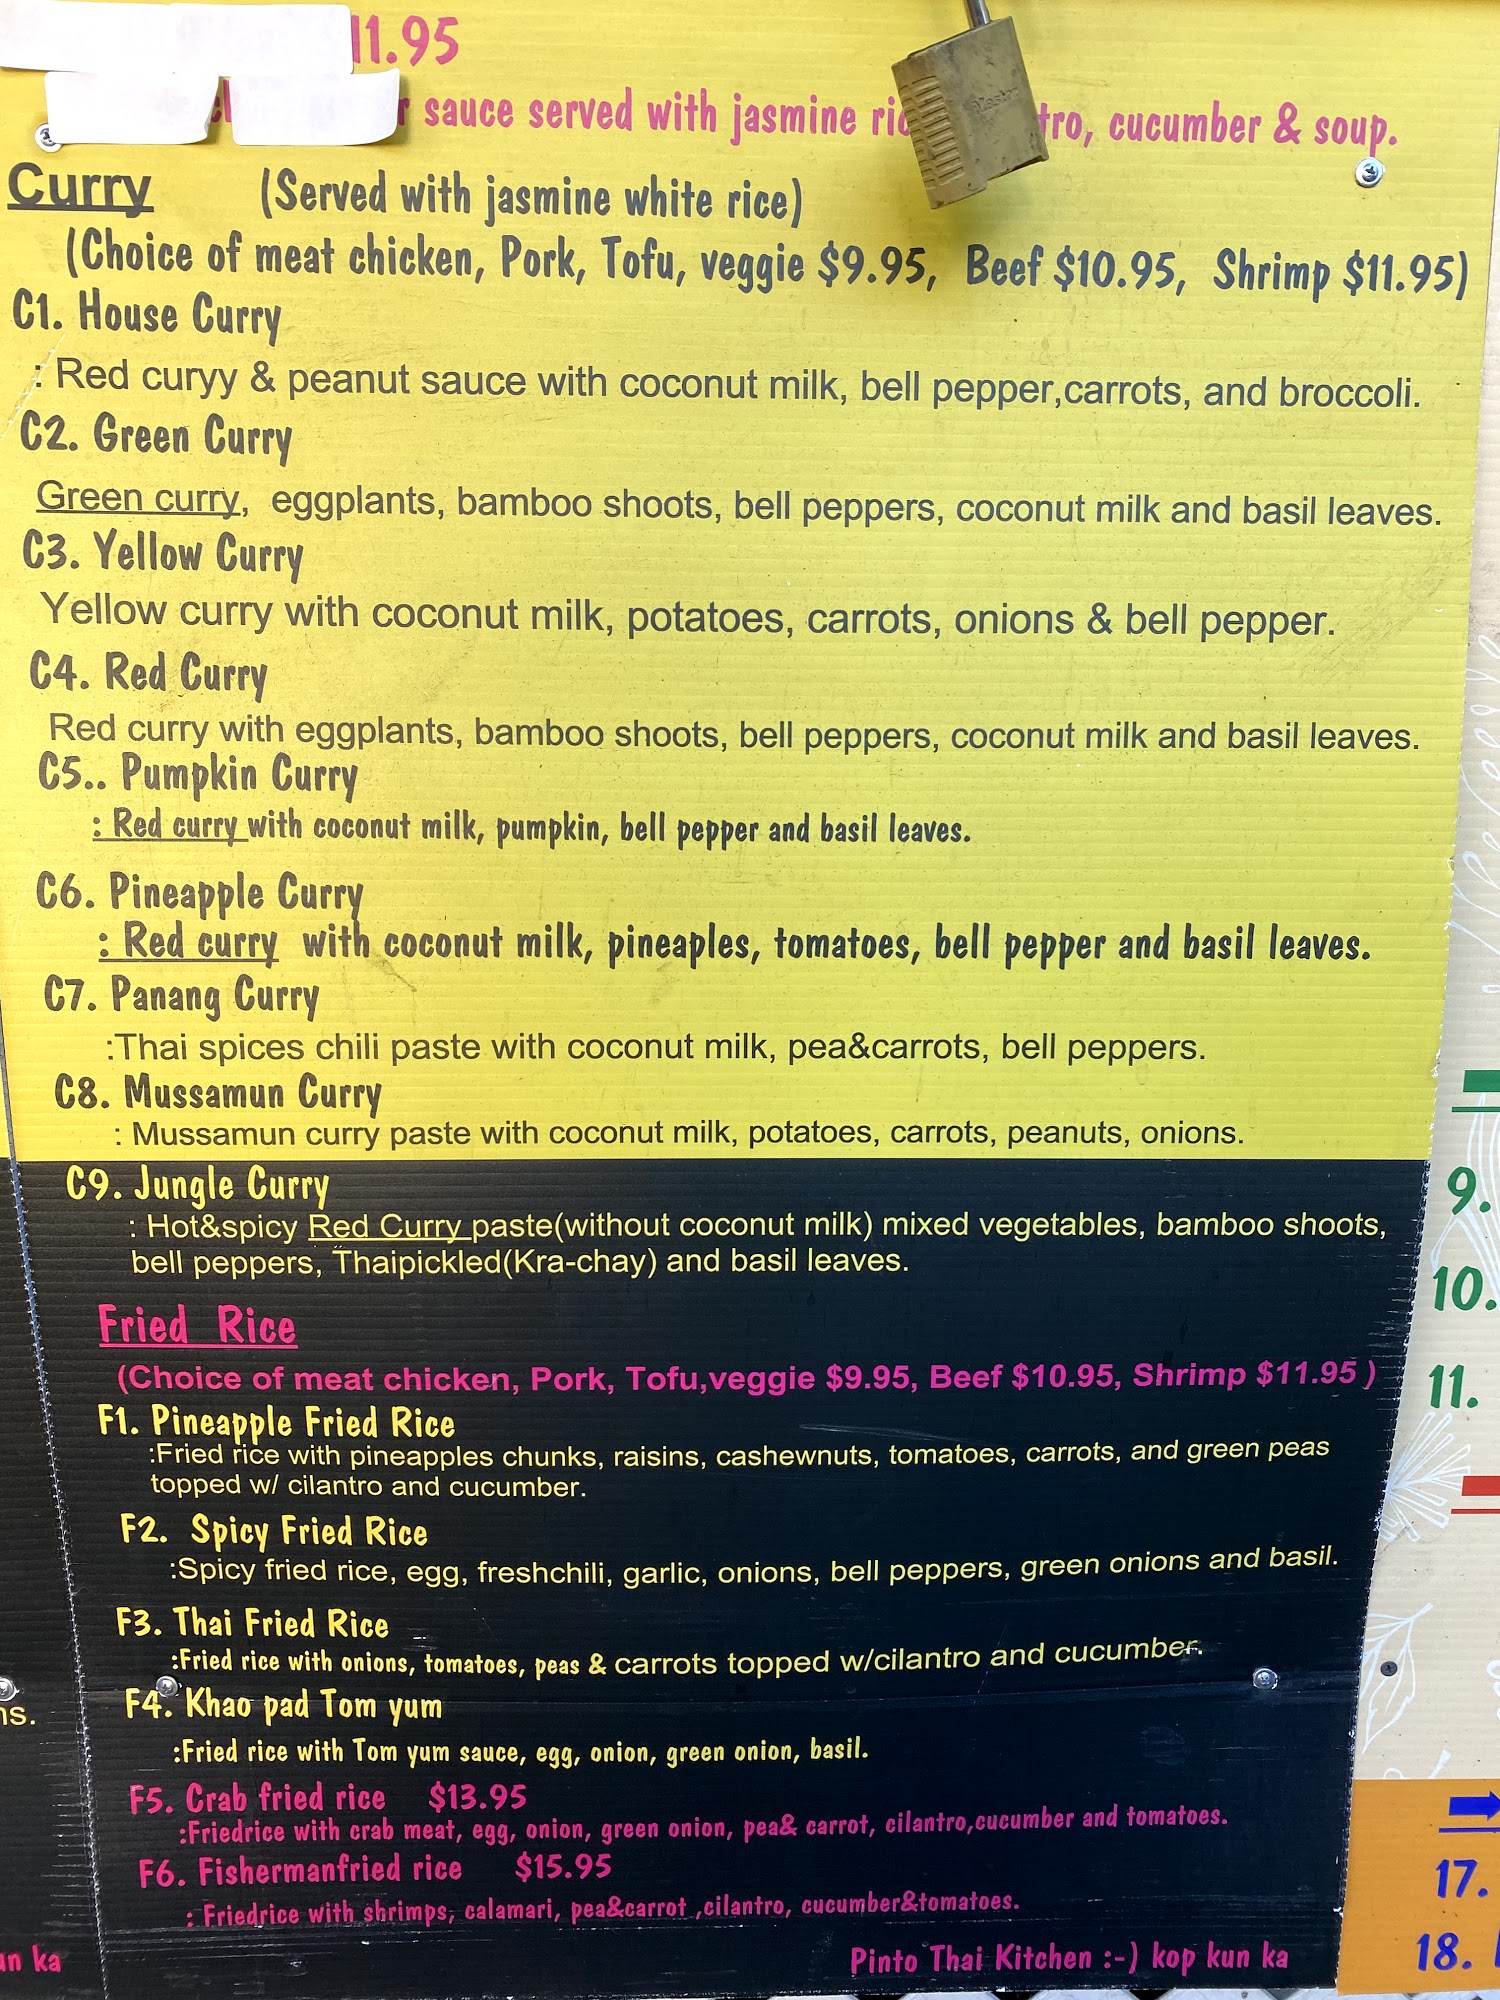 11.95
sauce served with jasmine
cucumber & soup.
Curry (Served with jasmine white rice)
(Choice of meat chicken, Pork, Tofu, veggie $9.95, Beef $10.95, Shrimp $11.95)
C1. House Curry
: Red curyy & peanut sauce with coconut milk, bell pepper,carrots, and broccoli.
C2. Green Curry
Green curry, eggplants, bamboo shoots, bell peppers, coconut milk and basil leaves.
C3. Yellow Curry
Yellow curry with coconut milk, potatoes, carrots, onions & bell pepper.
C4. Red Curry
Red curry with eggplants, bamboo shoots, bell peppers, coconut milk and basil leaves.
C5.. Pumpkin Curry
: Red curry with coconut milk, pumpkin, bell pepper and basil leaves.
C6. Pineapple Curry
: Red curry with coconut milk, pineaples, tomatoes, bell pepper and basil leaves.
C7. Panang Curry
:Thai spices chili paste with coconut milk, pea&carrots, bell peppers.
C8. Mussamun Curry
: Mussamun curry paste with coconut milk, potatoes, carrots, peanuts, onions.
C9. Jungle Curry
: Hot&spicy Red Curry paste(without coconut milk) mixed vegetables, bamboo shoots,
bell peppers, Thaipickled(Kra-chay) and basil leaves.
Fried Rice
(Choice of meat chicken, Pork, Tofu,veggie $9.95, Beef $10.95, Shrimp $11.95)
F1. Pineapple Fried Rice
:Fried rice with pineapples chunks, raisins, cashewnuts, tomatoes, carrots, and green peas
topped w/ cilantro and cucumber.
F2. Spicy Fried Rice
:Spicy fried rice, egg, freshchili, garlic, onions, bell peppers, green onions and basil.
F3. Thai Fried Rice
:Fried rice with onions, tomatoes, peas & carrots topped w/cilantro and cucumber.
F4. Khao pad Tom yum
:Fried rice with Tom yum sauce, egg, onion, green onion, basil.
F5. Crab fried rice $13.95
:Friedrice with crab meat, egg, onion, green onion, pea& carrot, cilantro,cucumber and tomatoes.
F6. Fishermanfried rice $15.95
: Friedrice with shrimps, calamari, pea&carrot ,cilantro, cucumber&tomatoes.
Pinto Thai Kitchen :-) kop kun ka
ka
9.
10.
11.
17.
18.